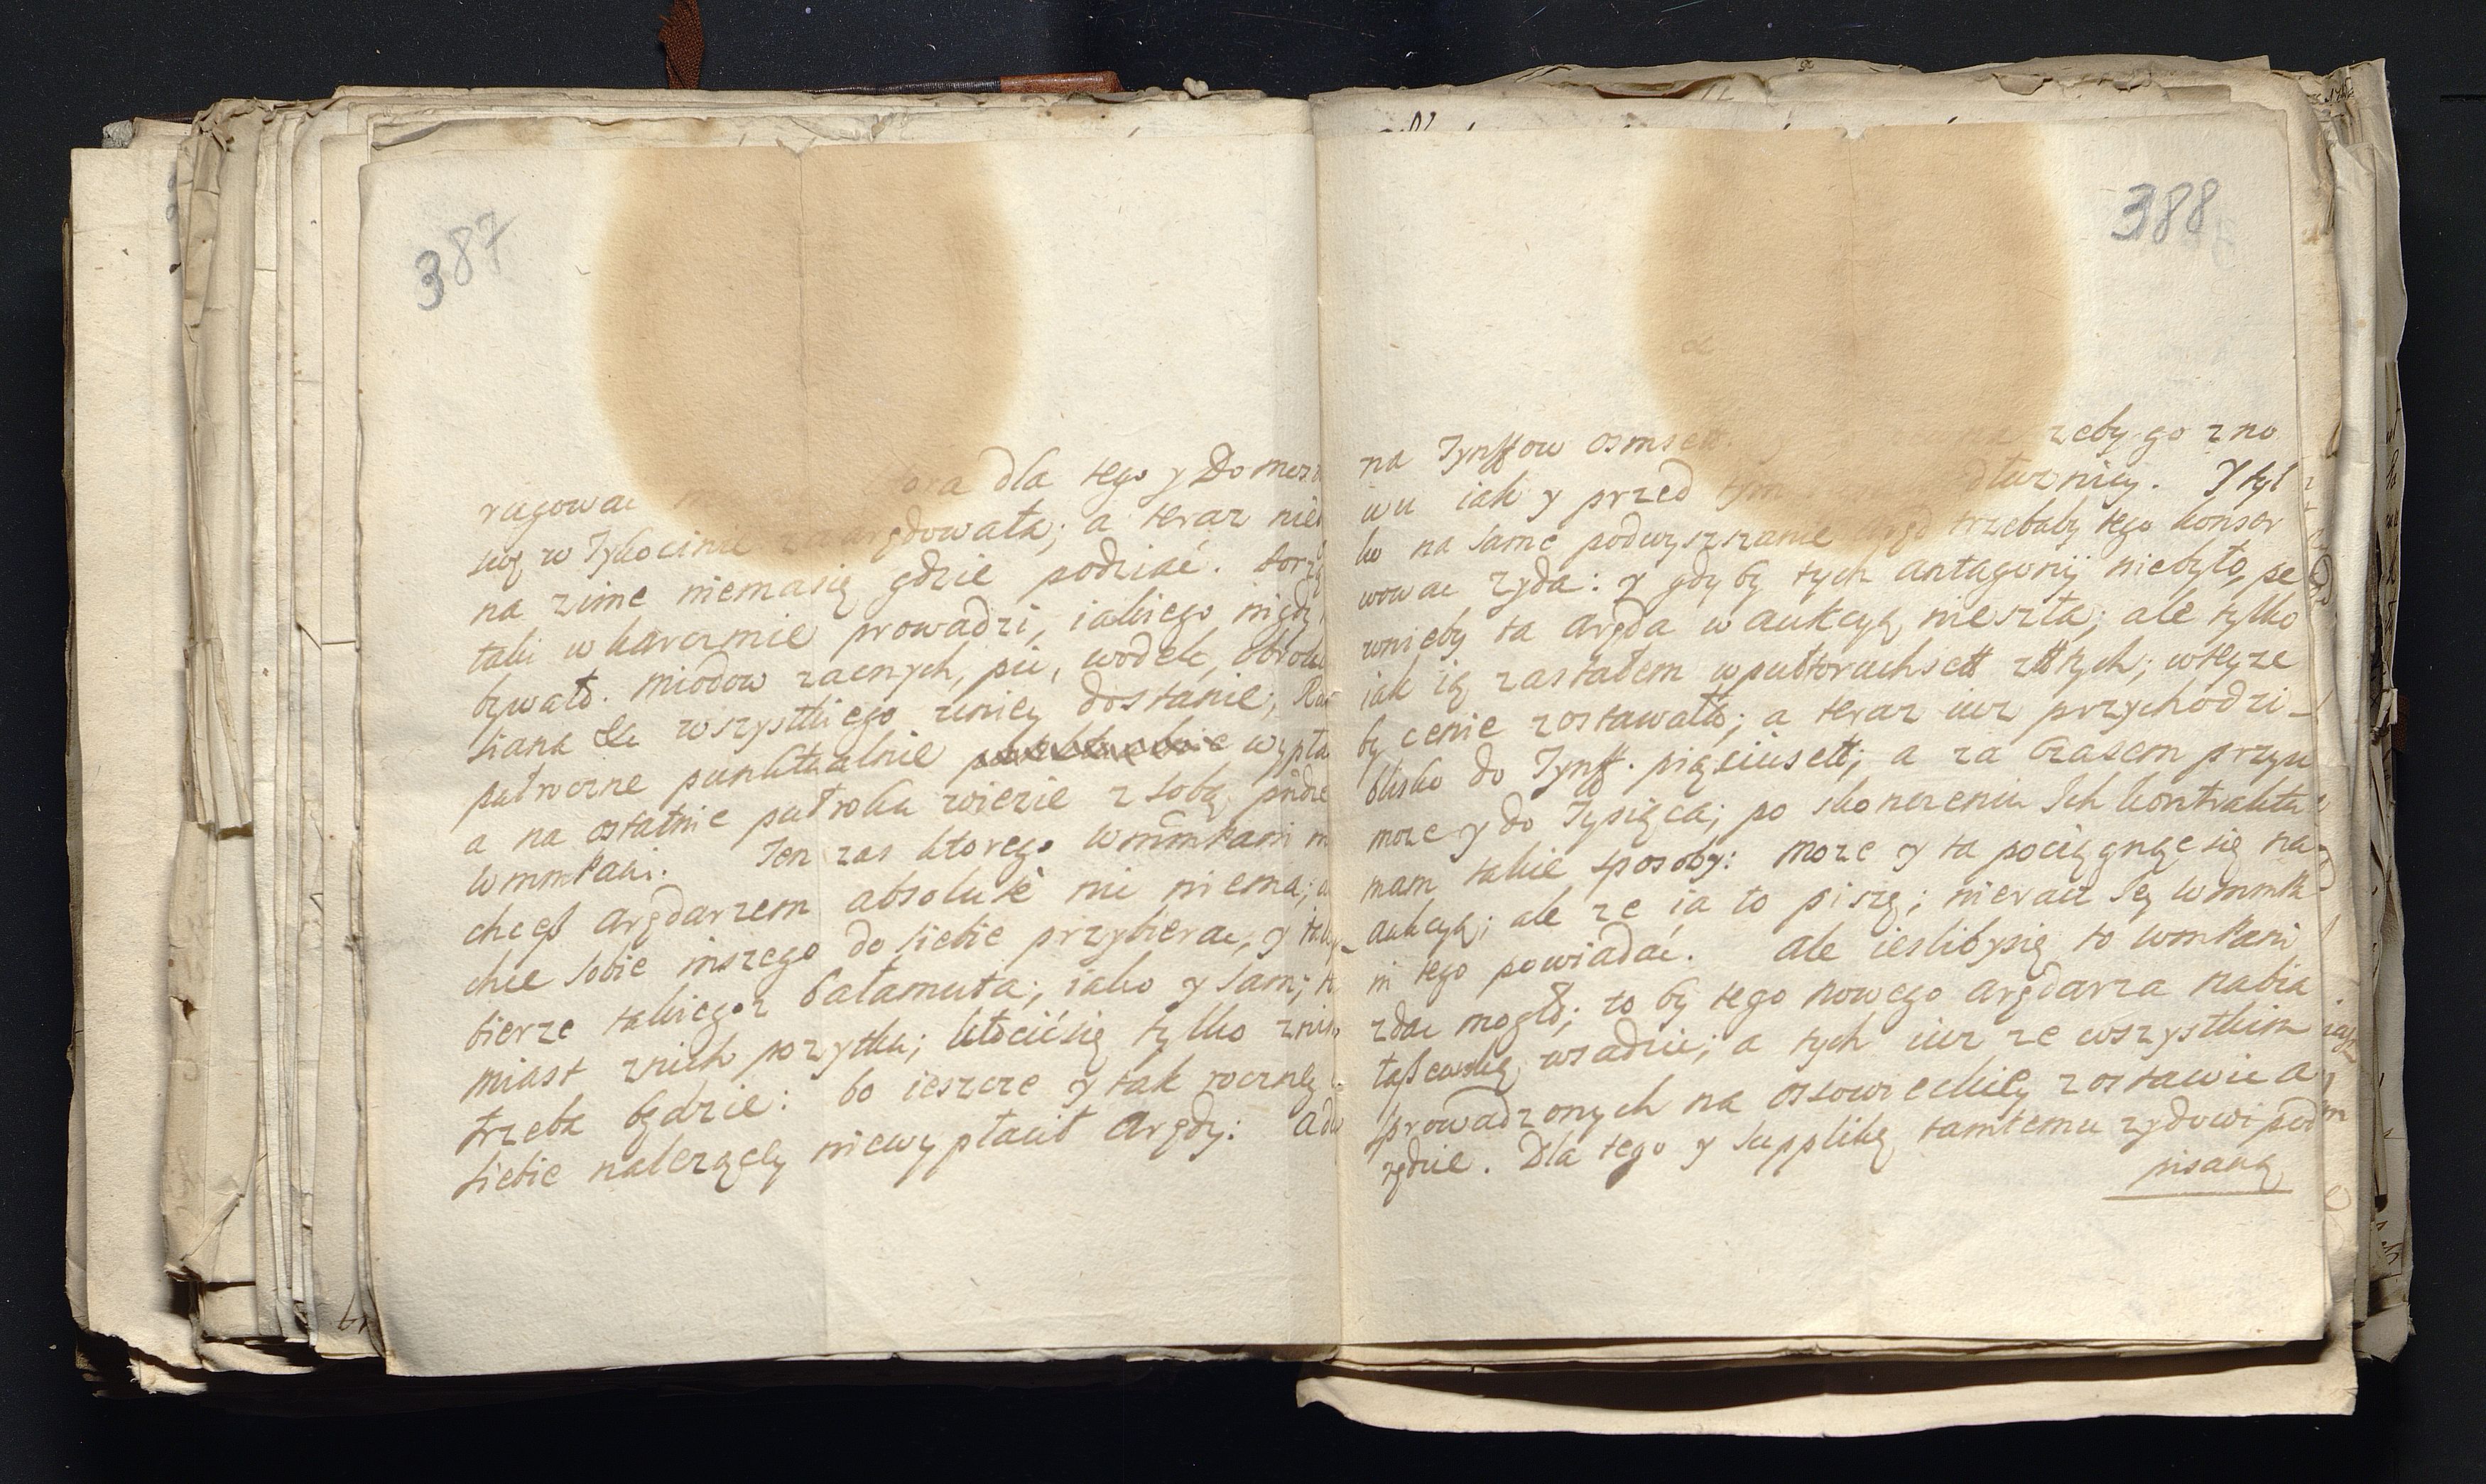 387
ragowac dla tego y Domest
swą w Tykocinie zaarędowała; a teraz nie
na zime niemasię gdzie podziać.
taki w karczmie prowadzi, iakiego nigdy
bywało. miodow zacnych, piw, wodek,
siana &c wszystkiego uniey dostanie;
pułroczne punktualnie wypła
a na ostatnie pułroku wiezie z sobą
WmmPani. Ten zas ktorego WmmPani
chceß arędarzem absolute nic niema;
chce sobie inszego do siebie przybierac, y
bierze takiegoz bałamuta; iako y sam;
miast znich pozytku; kłocićsię tylko
trzeba będzie: bo ieszcze y tak roczney
siebie nalezącey niewypłacił Arędy:
388
na Tynffow osmset zeby go zno
wu iak y przed tym dłuzniey. Y tyl
ko na same podwyszszanie aręd trzebaby tego konser
wowac zyda: y gdyby tych antagonij niebyło, pe
wnieby ta aręda w aukcyą nieszła; ale tylko
iak ią zastałem wpułtorachset złłtych; wteyze
by cenie zostawała; a teraz iuz przychodzi
blisko do Tynff. pięciuset; a za Czasem przyść
moze y do Tysiąca; po skonczeniu Ich kontraktu
mam takie sposoby: moze y ta pociągnąc się na
aukcyą; ale ze ia to piszę; nieracz Ieÿ WmmPa
ni tego powiadać. Ale iesliby się to WmPani
zdac mogło; to by tego nowego arędarza na bia
łaßewską wsadzic; a tych iuz ze wszystkim
sprowadzonych na ossowieckiey zostawic a
rędzie. Dla tego y supplikę tamtemu zydowi pod
pisaną